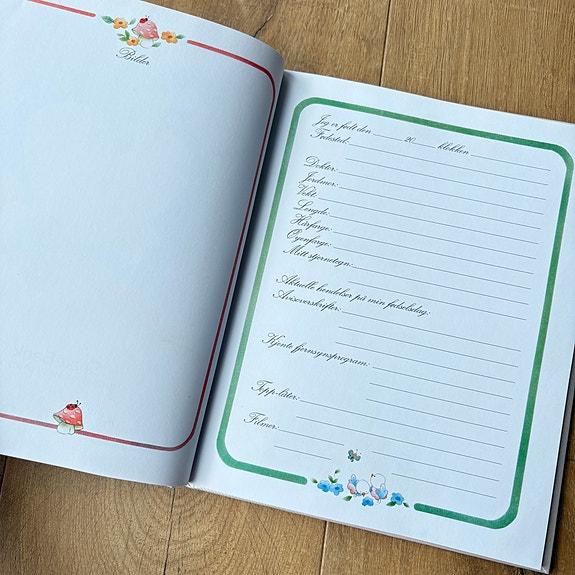 Bilder
Jeg er født den 20 klokken
Fødested:
Doktor:
Jordmor:
Vekt:
Lengde:
Hårfarge:
Øyenfarge:
Mitt stjernetegn:
Aktuelle hendelser på min fødselsdag:
Avisoverskrifter:
Kjente fjernsynsprogram:
Topp-låter:
Filmer: